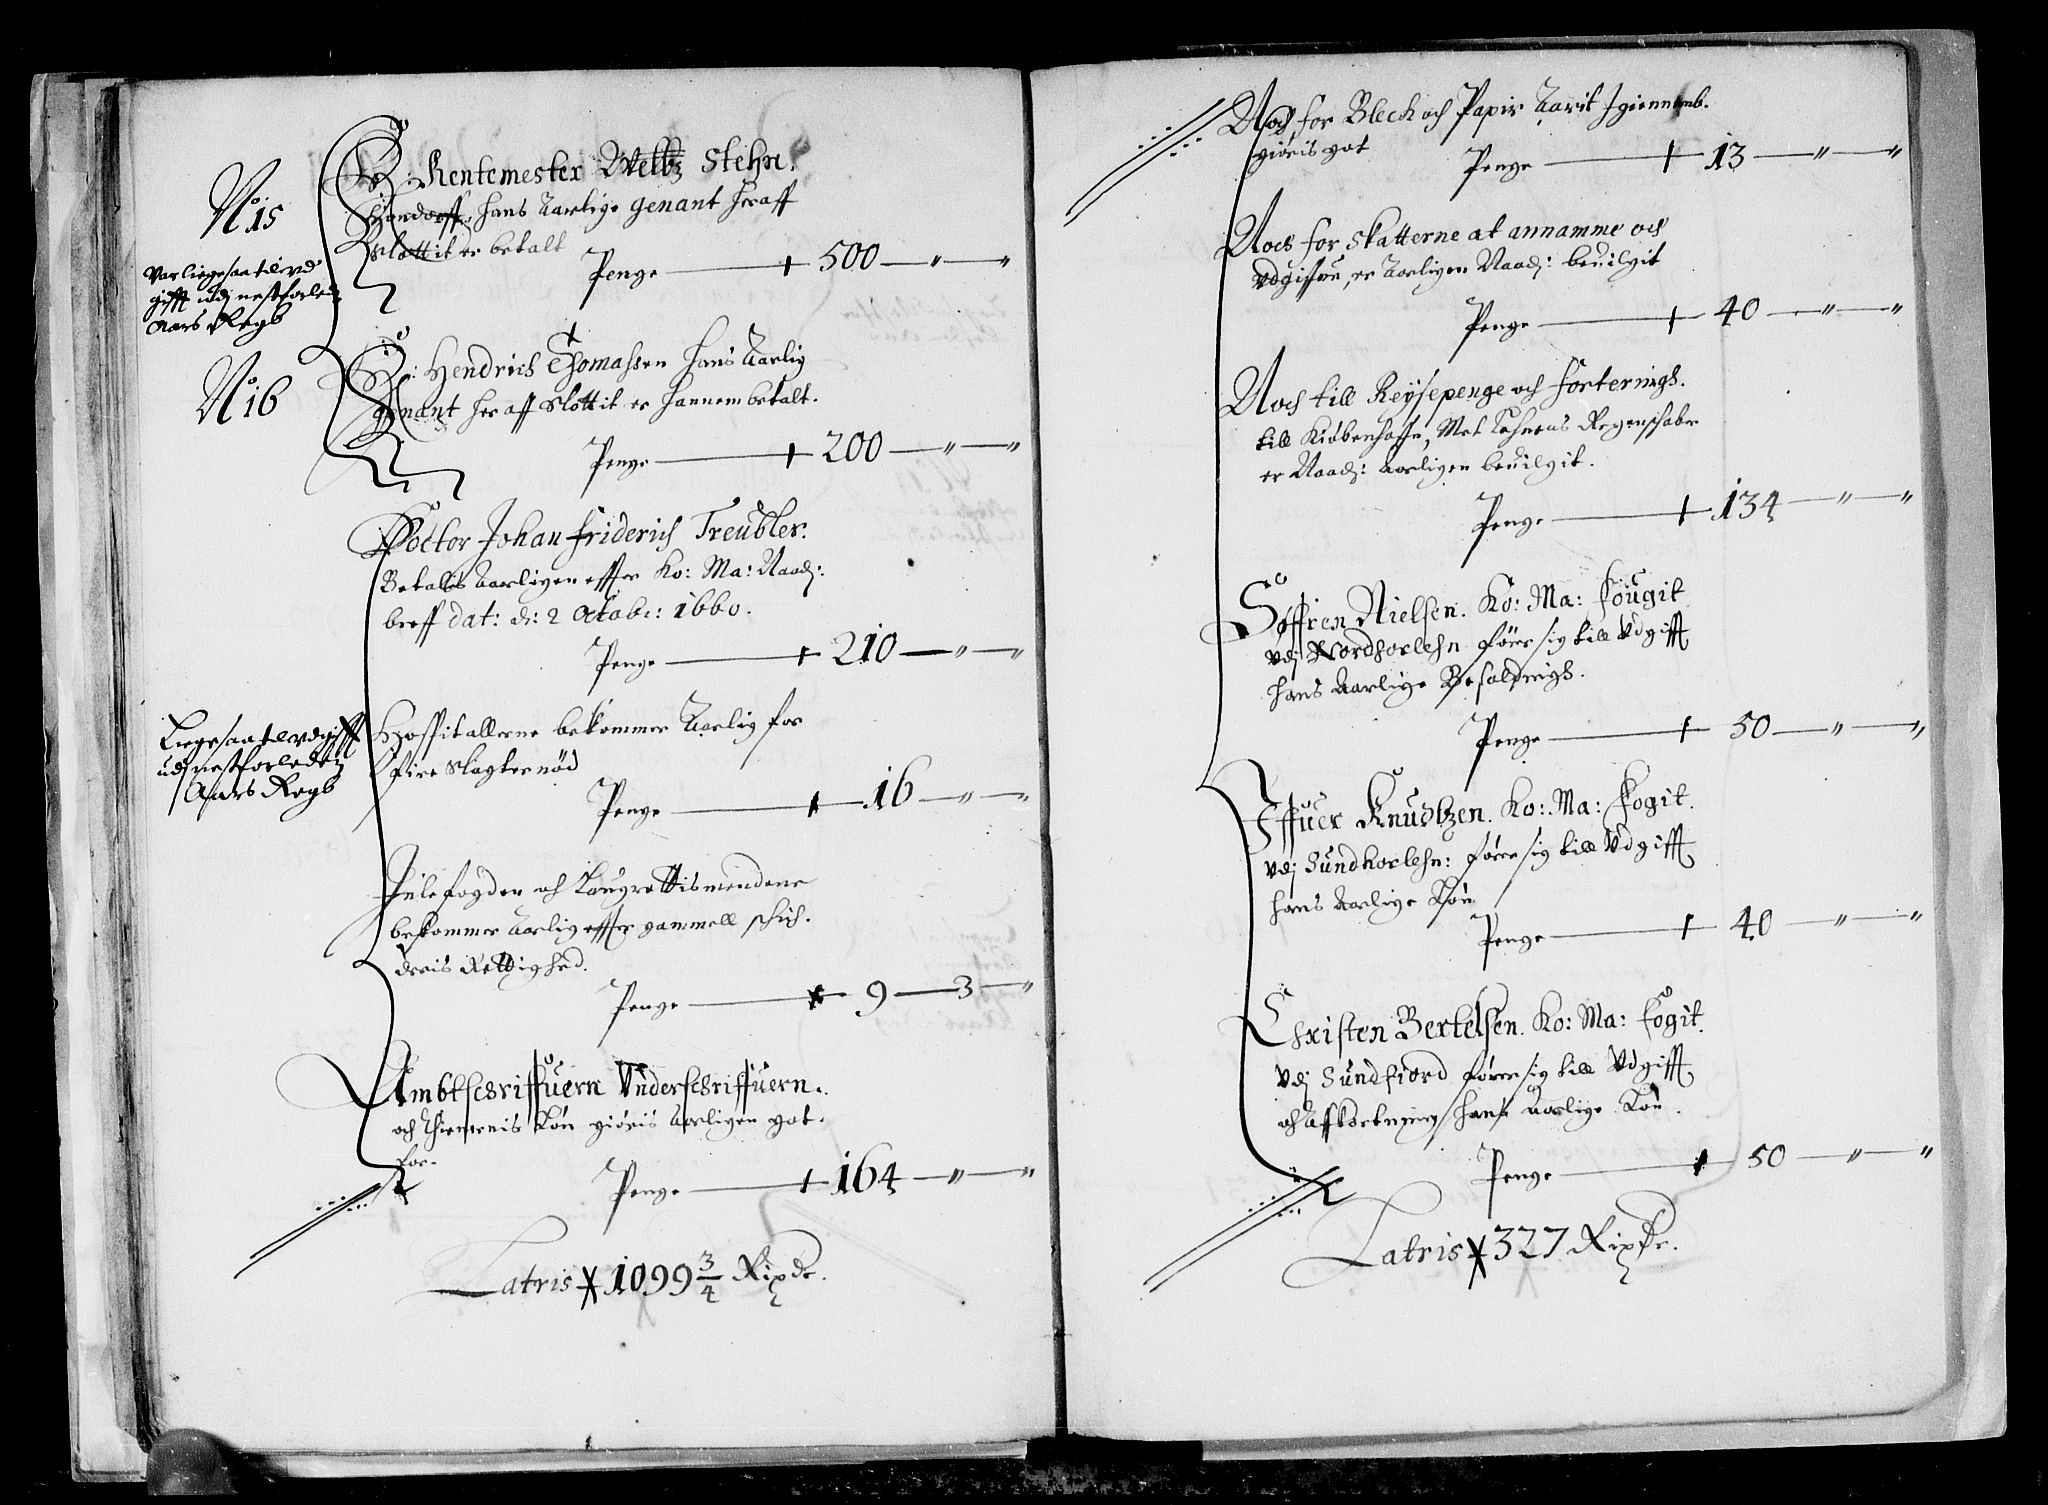 No 15
H: Rentemester Weltz Stehn.
hondorff, hans Aarlige genant her aff
Slottit er betalt
Penge — 500 — " — "
Var liigesaa til vd
gifft udj nestforled:
Aars Regsb
No 16
H: Hendrich Thomassen hans Aarlig
genant her aff Slottit er hannem betalt.
Penge — 200 — " — "
Doctor Johan Friderich Treubler.
Betalis Aarligen effter Ko: Ma: Naad:
breff dat: d: 2 Octobr: 1660.
Penge — 210 — " — "
Liigesaa til vdgifft
udj nestforleden
Aars Regsb
Hospitallerne bekommer Aarlig for
fire Slagternöd
Penge — 16 — " — "
Julefogden och Laugrettismendene
bekommer Aarlig effter gammell schich.
Penge — 9 — 3 — "
Ambtschriffuern Vnderschriffuern.
och Thienernis Lön giöris Aarligen got.
for.
Penge — 164 — " — "
Latris 1099 3/4 Rixdr.
Noch for Blech och Papir Aarit Igiennemb.
giöris got
Penge — 13 — " — "
Noch for Skatterne at annamme och
Vdgiffue, er Aarligen Naad: beuilgit
Penge — 40 — " — "
Noch till Reysepenge och forterings.
till Kiöbenhaffn, Met Lehnens Regenschaber
er Naad: Aarligen beuilgit.
Penge — 134 — " — "
Söffren Nielsen. Ko: Ma: fougit
Vdj Nordhorlehn förer sig till Vdgifft
hans Aarlige Besoldnings.
Penge — 50 — " — "
Iffuer Knudtzen. Ko: Ma: Fogit.
Vdj Sundhorlehn: förer sig till Vdgifft
hans Aarlige Lön
Penge — 40 — " — "
Christen Bertelsen. Ko: Ma: Fogit.
Vdj Sundfiord förer sig till Vdgifft
och Affkortning hans Aarlige Lön.
Penge — 50 — " — "
Latris 327 Rixdr.